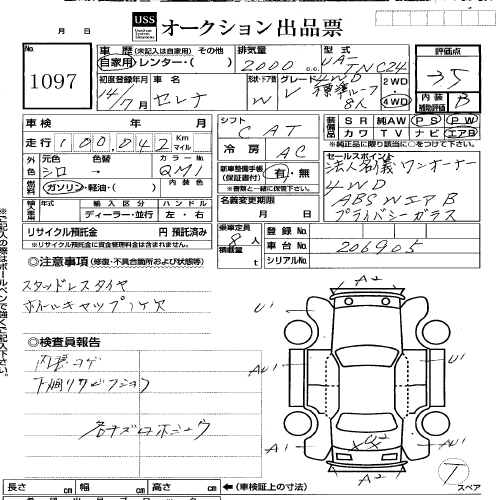 USS オークション出品票
月 日
No.
1097
車歴 (未記入は自家用) その他
自家用 レンター・( )
排気量
2000 cc
型式
UA-
TNC24
評価点
35
初度登録年月
14/7月
車名
セレナ
形状・ドア数
W
グレード 4WD
V 標準ルーフ
8人
2WD
4WD
内装
補助評価
B
車検 年 月
走行 100,042 Km
マイル
シフト
CAT
冷房
AC
装備品
SR 純AW PS PW
カワ TV ナビ エアB
*純正品に限り該当に○をつけて下さい。
外色
元色 色替
シロ →
カラーNo.
QM1
燃料
ガソリン・軽油・( )
内装色
新車整備手帳
(保証書付) 有・無
*書類と一緒に保管下さい。
セールスポイント
法人名義ワンオーナー
4WD
ABS WエアB
プライバシーガラス
輸入車
輸入区分 ハンドル
ディーラー・並行 左・右
名義変更期限
月 日
リサイクル預託金 円 預託済み
※リサイクル預託金に資金管理料金は含まれません。
乗車定員
8人
積載量
t
登録No.
車台No. 206905
シリアルNo.
◎注意事項 (修復・不具合箇所および状態等)
スタッドレスタイヤ
ホイールキャップ1ケ欠
◎検査員報告
内装コゲ
A2
U1
U1
AU1
U1
A1
A1
A2
T
スペア
長さ cm 幅 cm 高さ cm ←(車検証上の寸法)
※ご記入の際はボールペンで強くご記入下さい。